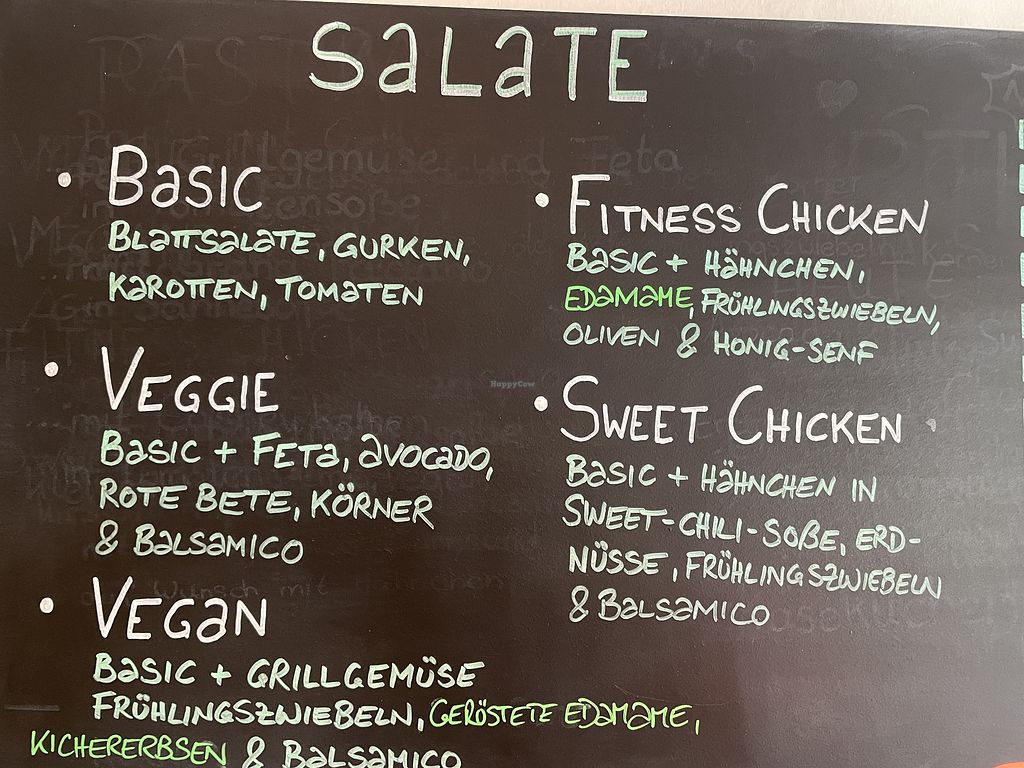 SaLaTE
• BaSIC
BLaTTSaLaTE, GURKEN,
KaROTTEN, TOMaTEN
• VEGGIE
BaSIC + FETa, aVOCaDO,
ROTE BETE, KÖRNER
& BaLSaMICO
• VEGaN
BaSIC + GRILLGEMÜSE
FRÜHLINGSZWIEBELN, GERÖSTETE EDaMaME,
KICHERERBSEN & BaLSaMICO
• FITNESS CHICKEN
BaSIC + HäHNCHEN,
EDaMaME, FRÜHLINGSZWIEBELN,
OLIVEN & HONIG-SENF
• SWEET CHICKEN
BaSIC + HäHNCHEN IN
SWEET-CHILI-SOßE, ERD-
NÜSSE, FRÜHLINGSZWIEBELN
& BaLSaMICO
HappyCow